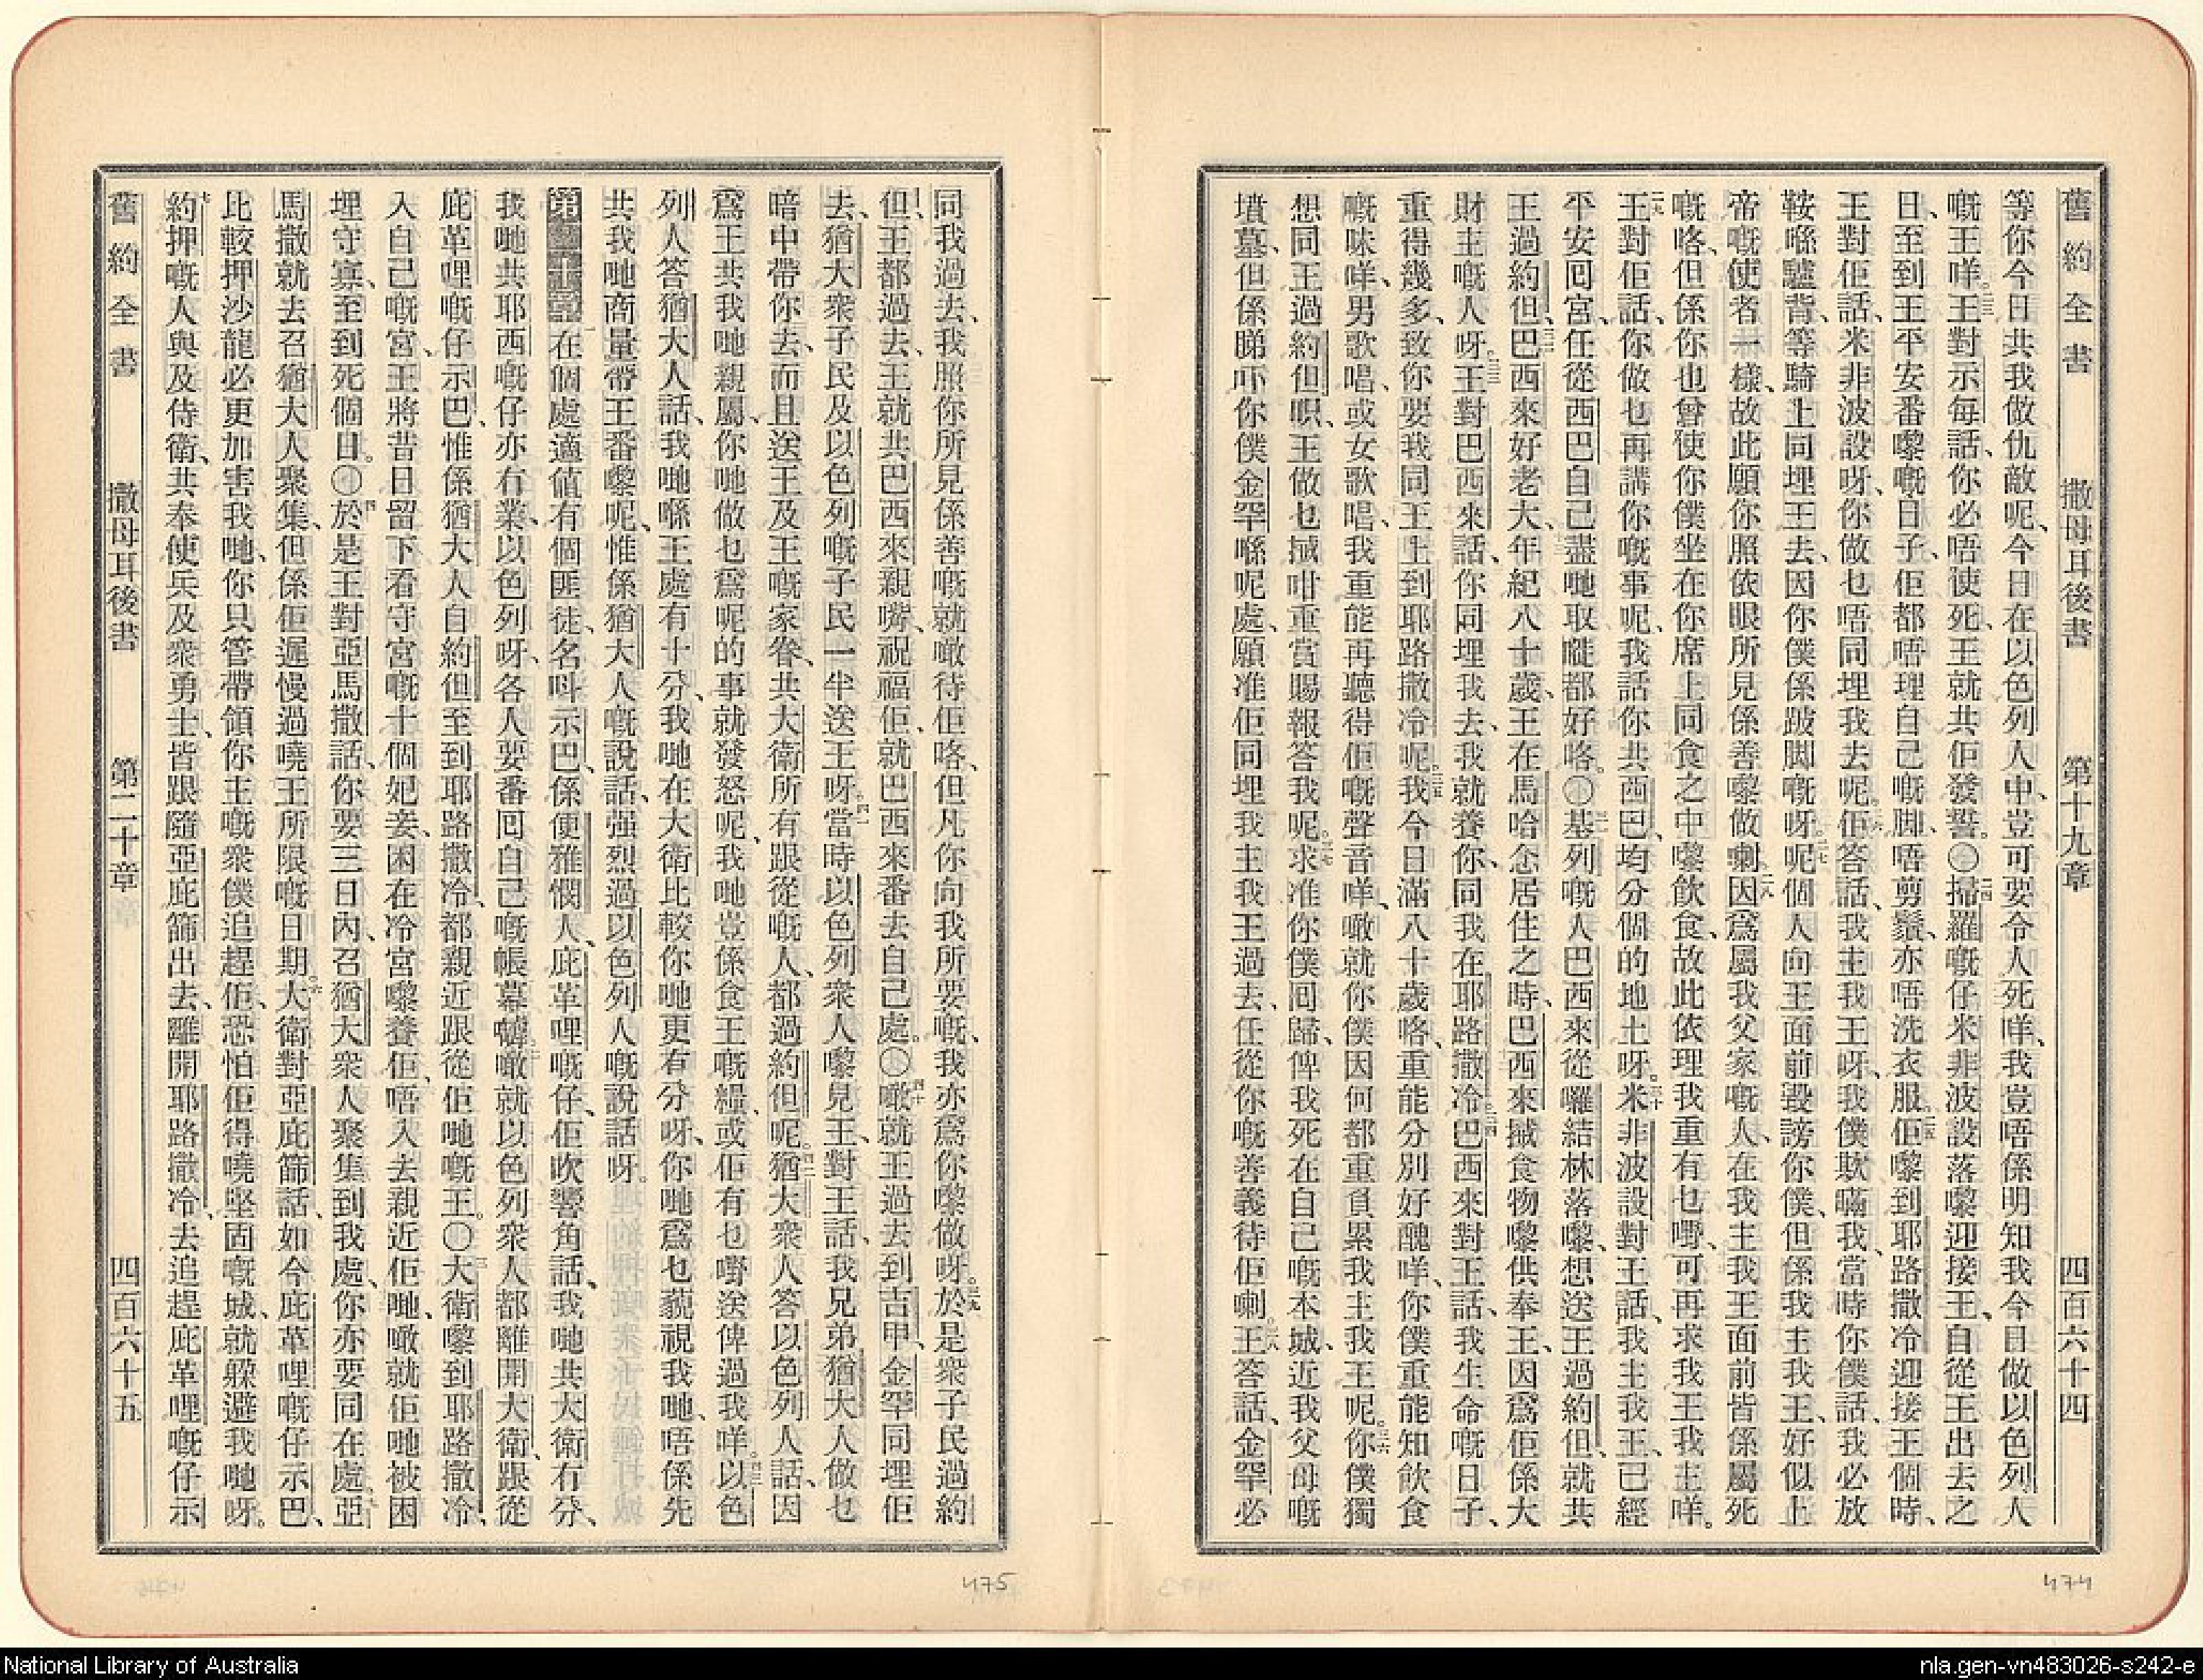 舊約全書 撒母耳後書 第十九章 四百六十四
等你今日共我做仇敵呢、今日在以色列人中、豈可要令人死咩、我豈唔係明知我今日做以色列人
嘅王咩。二三王對示每話、你必唔使死、王就共佢發誓。〇二四掃羅嘅仔米非波設落嚟迎接王、自從王出去之
日、至到王平安番嚟嘅日子、佢都唔理自己嘅脚、唔剪鬚、亦唔洗衣服。二五佢嚟到耶路撒冷迎接王個時、
王對佢話、米非波設呀、你做乜唔同埋我去呢。二六佢答話、我主我王呀、我僕欺瞞我、當時你僕話、我必放
鞍喺驢背、等騎上同埋王去、因你僕係跛脚嘅呀。二七呢個人向王面前毀謗你僕、但係我主我王、好似上
帝嘅使者一樣、故此願你照依眼所見係善嚟做喇。二八因爲屬我父家嘅人、在我主我王面前皆係屬死
嘅咯、但係你也曾使你僕坐在你席上同食之中嚟飲食、故此依理我重有乜嘢、可再求我王我主咩。
二九王對佢話、你做乜再講你嘅事呢、我話你共西巴、均分個的地土呀。三十米非波設對王話、我主我王、已經
平安囘宮、任從西巴自己盡哋取嗟都好咯。〇三一基列嘅人巴西來從囉結林落嚟、想送王過約但、就共
王過約但、三二巴西來好老大、年紀八十歲、王在馬哈念居住之時、巴西來搣食物嚟供奉王、因爲佢係大
財主嘅人呀。三三王對巴西來話、你同埋我去、我就養你、同我在耶路撒冷。三四巴西來對王話、我生命嘅日子、
重得幾多、致你要我同王上到耶路撒冷呢。三五我今日滿八十歲咯、重能分別好醜咩、你僕重能知飲食
嘅味咩、男歌唱、或女歌唱、我重能再聽得佢嘅聲音咩、噉就你僕因何都重負累我主我王呢。三六你僕獨
想同王過約但呮、王做乜搣咁重賞賜報答我呢。三七求准你僕囘歸、俾我死在自己嘅本城、近我父母嘅
墳墓、但係睇吓你僕金罕喺呢處、願准佢同埋我主我王過去、任從你嘅善義待佢喇。三八王答話、金罕必
同我過去、我照你所見係善嘅、就噉待佢咯、但凡你向我所要嘅、我亦爲你嚟做呀。三九於是衆子民過約
但、王都過去、王就共巴西來親嘴、祝福佢、就巴西來番去自己處。〇四十噉就王過去到吉甲、金罕同埋佢
去、猶大衆子民、及以色列嘅子民一半送王呀。四一當時以色列衆人嚟見王、對王話、我兄弟猶大人做乜
暗中帶你去、而且送王及王嘅家眷、共大衛所有跟從嘅人、都過約但呢。四二猶大衆人答以色列人話、因
爲王共我哋親屬、你哋做乜爲呢的事就發怒呢、我哋豈係食王嘅糧、或佢有乜嘢送俾過我咩。四三以色
列人答猶大人話、我哋喺王處有十分、我哋在大衛比較你哋更有分呀、你哋爲乜藐視我哋、唔係先
共我哋商量帶王番嚟呢、惟係猶大人嘅說話、强烈過以色列人嘅說話呀。
第二十章 一在個處適値有個匪徒、名呌示巴、係便雅憫人、庇革哩嘅仔、佢吹響角話、我哋共大衛冇分、
我哋共耶西嘅仔亦冇業、以色列呀、各人要番囘自己嘅帳幕嚹。二噉就以色列衆人都離開大衛、跟從
庇革哩嘅仔示巴、惟係猶大人自約但至到耶路撒冷、都親近跟從佢哋嘅王。〇三大衛嚟到耶路撒冷、
入自己嘅宮、王將昔日留下看守宮嘅十個妃妾、困在冷宮嚟養佢、唔入去親近佢哋、噉就佢哋被困
埋守寡、至到死個日。〇四於是王對亞馬撒話、你要三日內、召猶大衆人聚集到我處、你亦要同在處、五亞
馬撒就去召猶大人聚集、但係佢遲慢過嘵王所限嘅日期。六大衛對亞庇篩話、如今庇革哩嘅仔示巴、
比較押沙龍必更加害我哋、你只管帶領你主嘅衆僕追趕佢、恐怕佢得嘵堅固嘅城、就躱避我哋呀。
七約押嘅人與及侍衛、共奉使兵及衆勇士、皆跟隨亞庇篩出去、離開耶路撒冷、去追趕庇革哩嘅仔示
舊約全書 撒母耳後書 第二十章 四百六十五
474
475
National Library of Australia
nla.gen-vn483026-s242-e